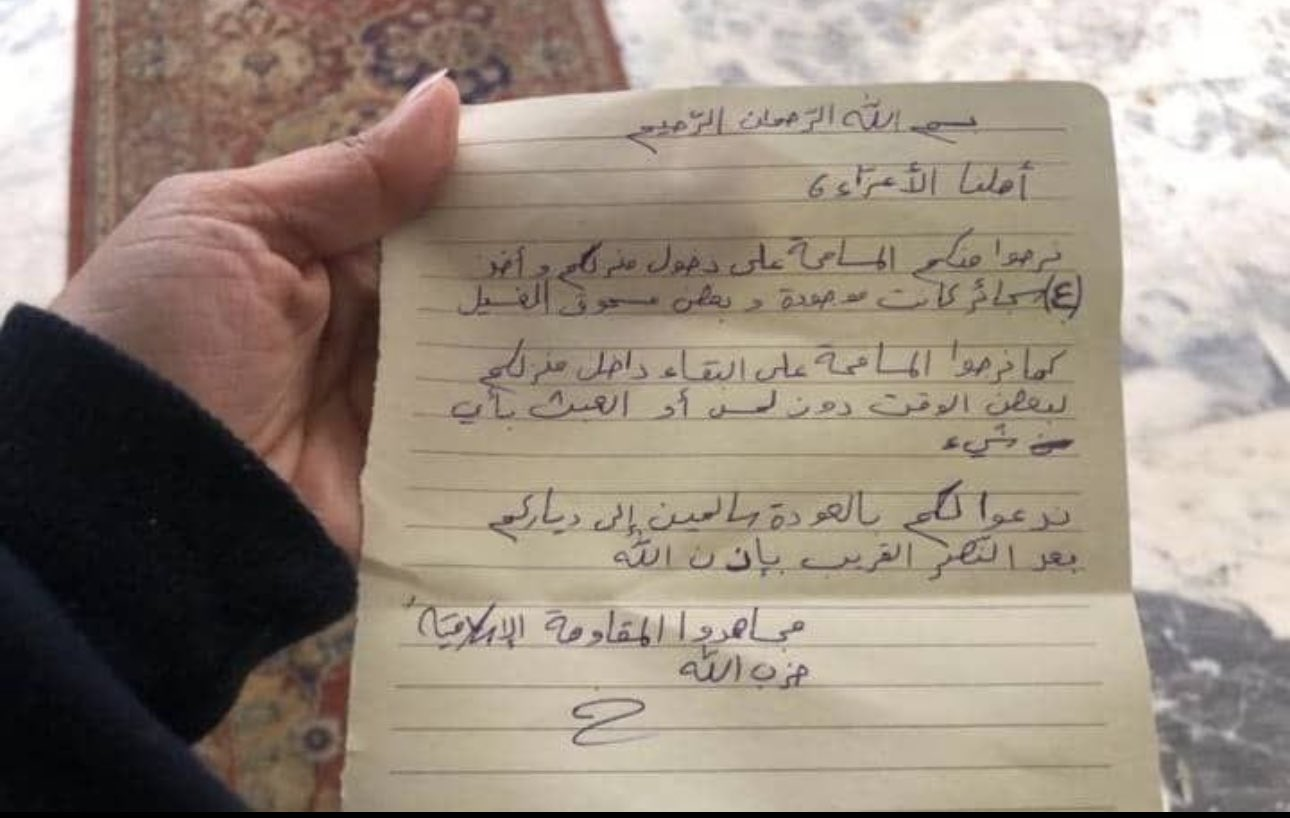 بسم الله الرّحمان الرّحيم
أهلنا الأعزّاء،
نرجوا منكم المسامحة على دخول منزلكم و أخذ
(٤) سجائر كانت موجودة و بعض مسحوق الغسيل
كما نرجوا المسامحة على البقاء داخل منزلكم
لبعض الوقت دون لمس أو العبث بأي
شيء
ندعوا لكم بالعودة سالمين إلى دياركم
بعد النّصر القريب بإذن الله
مجاهدوا المقاومة الإسلاميّة
حزب الله
ح